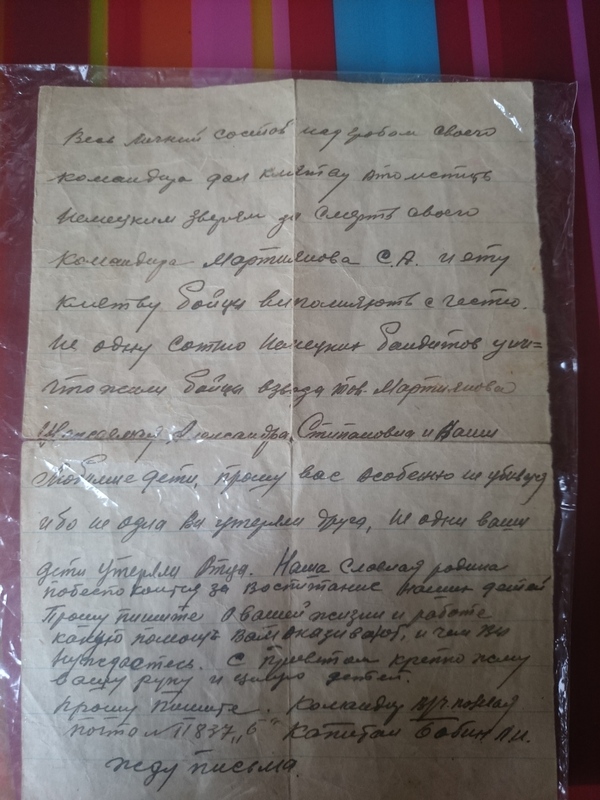 Весь личный состов над гробом своего
командира дал клятву отомстить
немецким зверям за смерть своего
командира Мартиянова С.А. и эту
клятву бойцы выполняють с честю.
не одну сотню немецких бандитов уни=
чтожили бойцы взвода тов. Мартиянова
Александра Стипановна и Ваши
любимые дети, прошу вас особенно не убиваця
ибо не одна Ви утеряли друга, не одни ваши
дети утеряли Отца. Наша родина
побеспокоится за Воспитание ваших детей
Прошу пишите о вашей жизни и работе
какую помощь Вам оказивают, и чем ви
нуждаетесь. С приветом крепко жму
вашу руку и целую детей.
Прошу пишите. Командир в/ч полевая
почта № 11837 „б" Капитан Бабин
Жду письма.